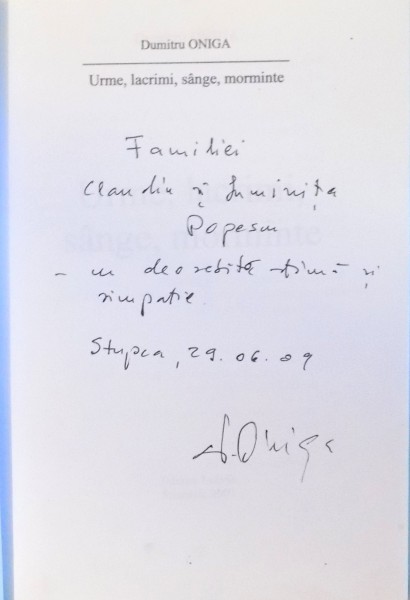 Dumitru ONIGA
Urme, lacrimi, sânge, morminte
Familiei
Claudiu și Luminița
Popescu
– cu deosebită stimă și
simpatie
Stupca, 29.06.09
D. Oniga